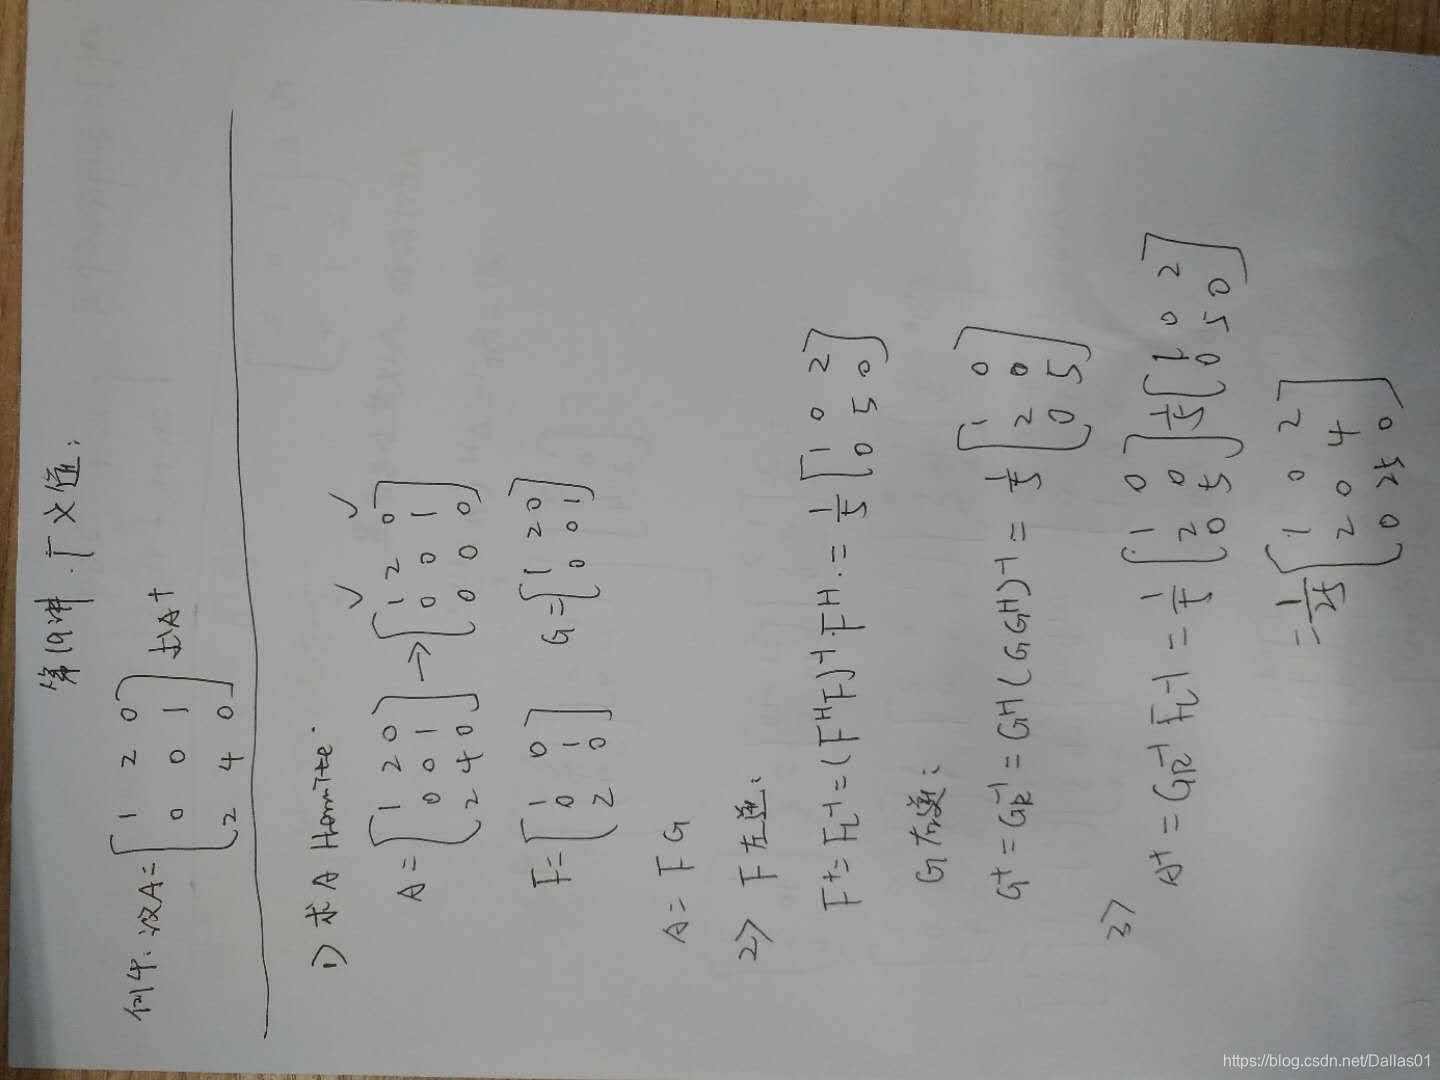 第19讲. 广义值:
例4: 设A= [1 2 0; 0 0 1; 2 4 0] 求A+
1> 求A Hermite.
A= [1 2 0; 0 0 1; 2 4 0] → [1 2 0; 0 0 1; 0 0 0]
F= [1 0; 0 1; 2 0] G= [1 2 0; 0 0 1]
A= FG
2> F左逆:
F+= FL-1 = (FHF)-1 FH. = 1/5 [1 0 2; 0 5 0]
G右逆:
G+ = GR-1 = GH (GGH)-1 = 1/5 [1 0; 2 0; 0 5]
3>
A+ = GR-1 FL-1 = 1/5 [1 0; 2 0; 0 5] 1/5 [1 0 2; 0 5 0]
= 1/25 [1 0 2; 2 0 4; 0 25 0]
https://blog.csdn.net/Dallas01